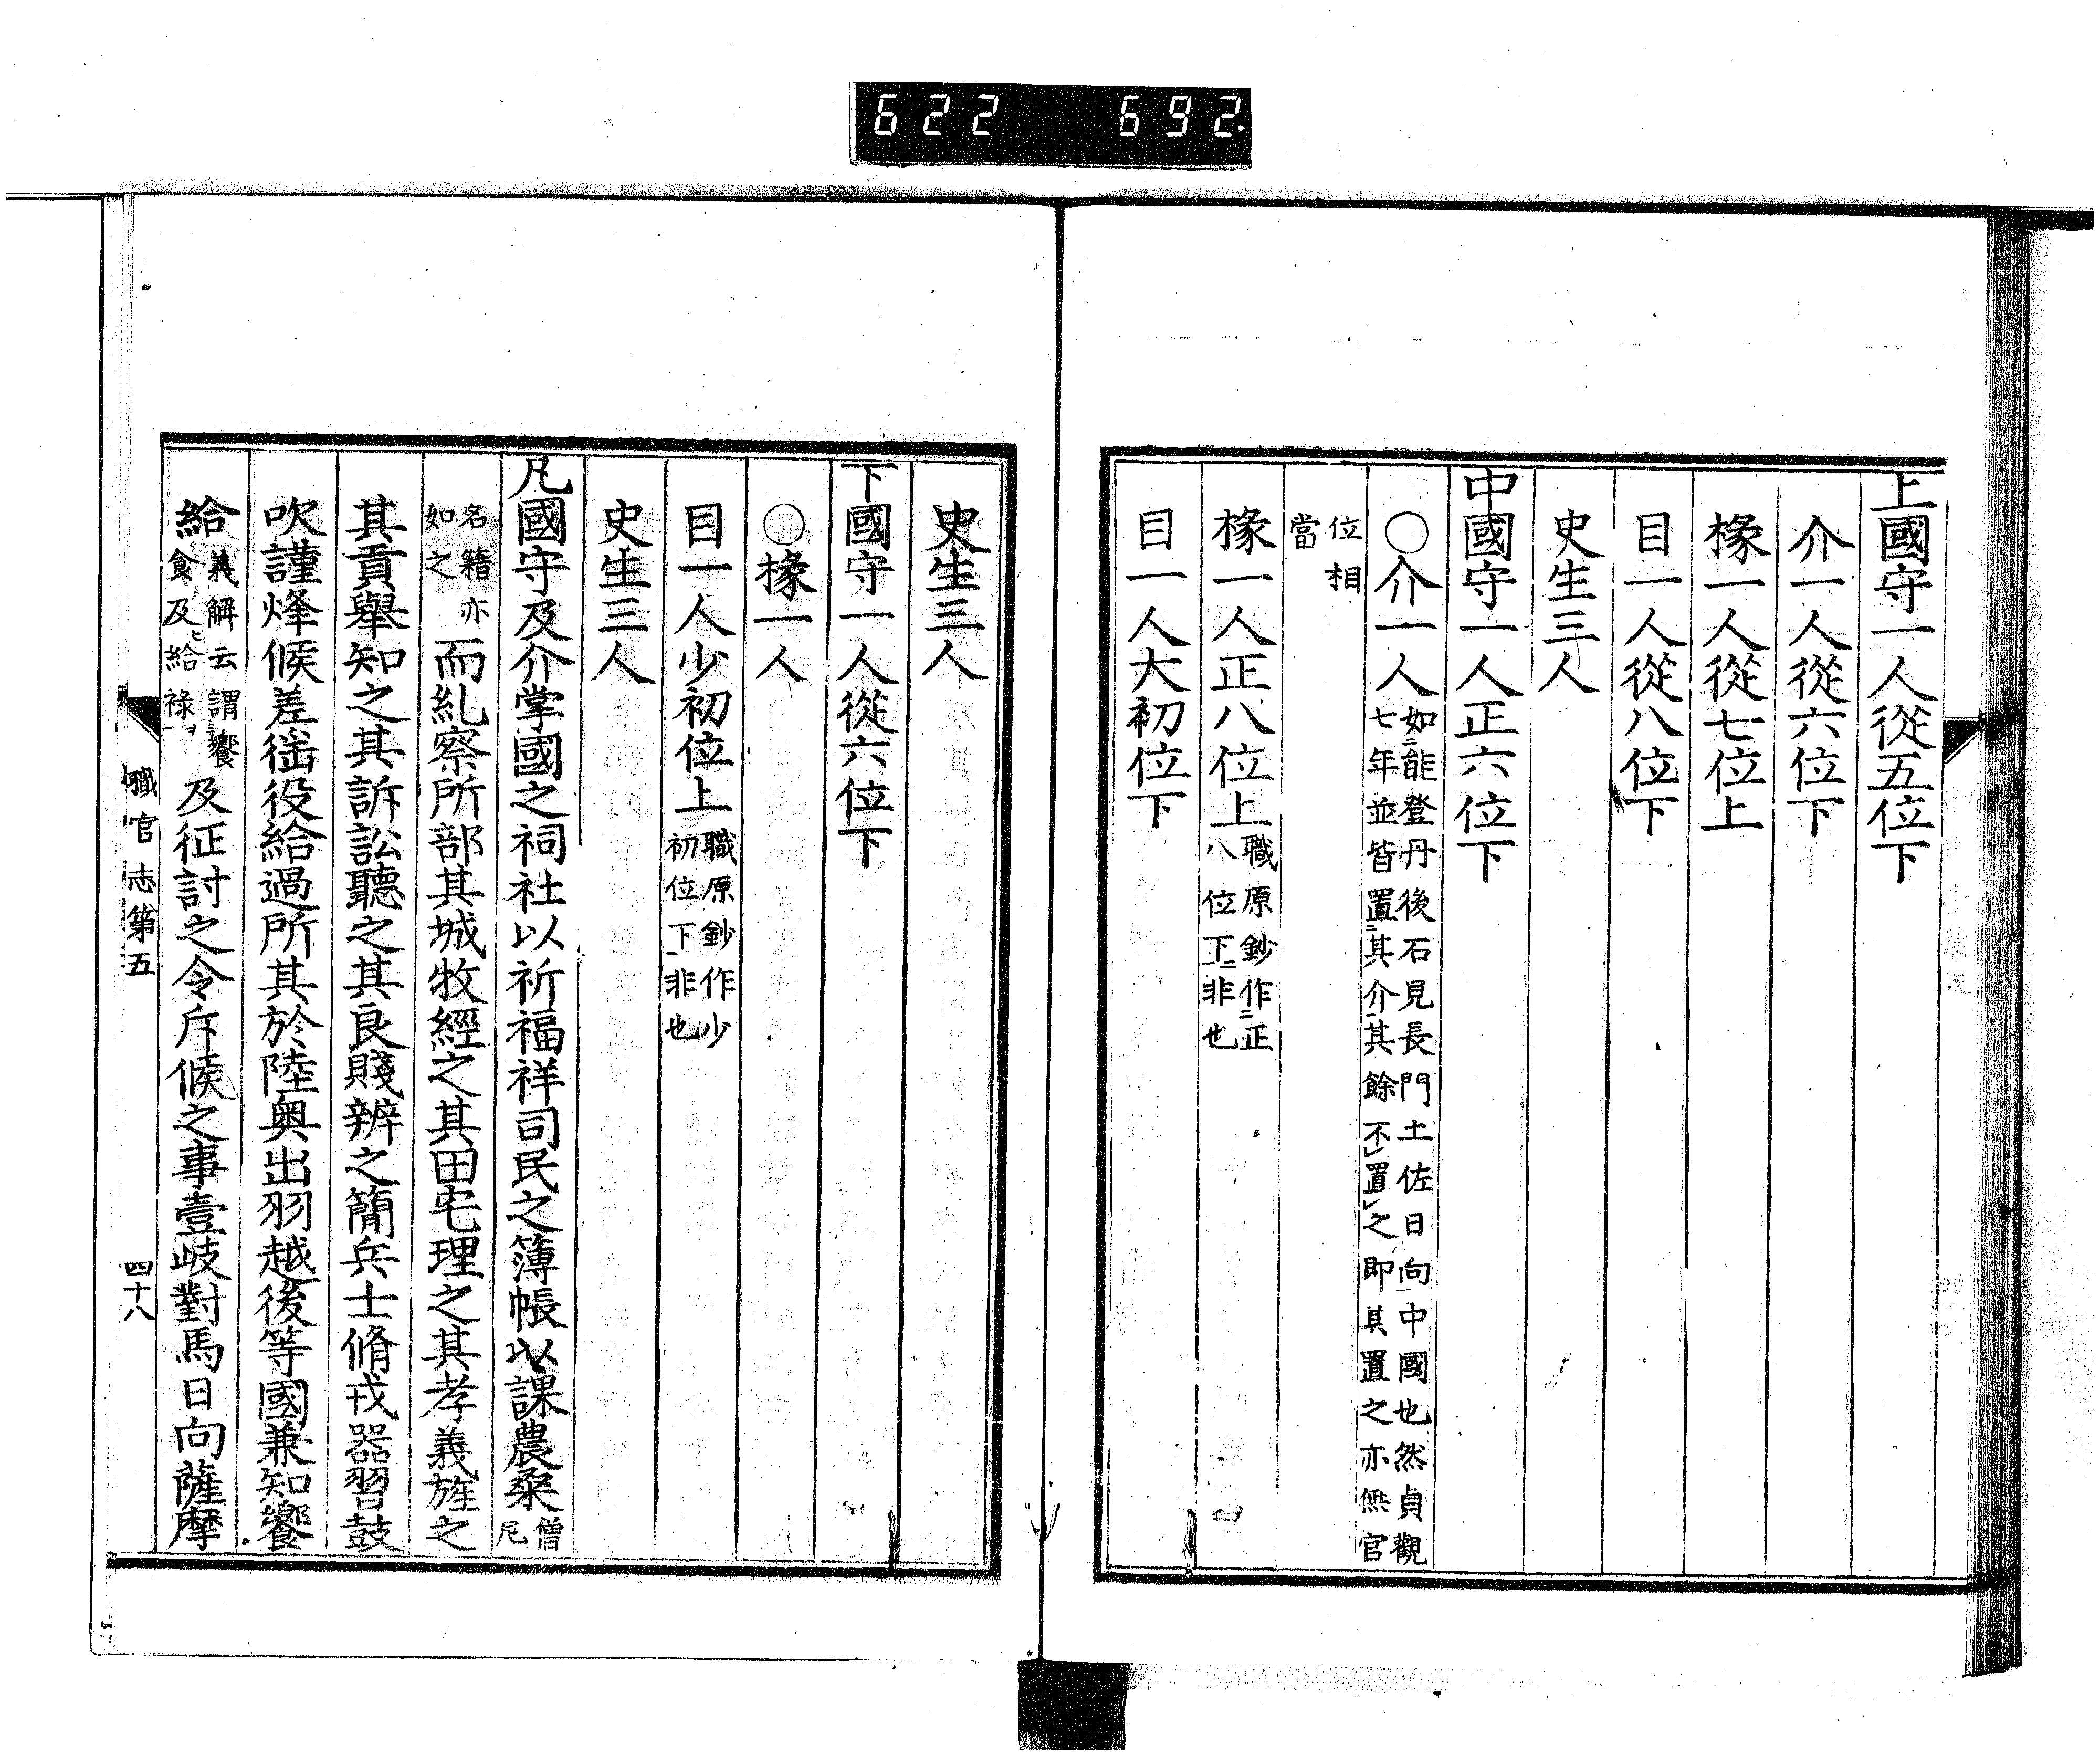 622 692
上國守一人從五位下
介一人從六位下
掾一人從七位上
目一人從八位下
史生三人
中國守一人正六位下
〇介一人
如二能登丹後石見長門土佐日向中國也然貞觀
七年並皆置二其介一其餘不レ置レ之即其置之亦無官
位相
當
掾一人正八位上
職原鈔作二正
八位下一非也
目一人大初位下
史生三人
下國守一人從六位下
〇掾一人
目一人少初位上
職原鈔作少
初位下一非也
史生三人
凡國守及介掌國之祠社以祈福祥司民之簿帳以課農桒
僧
尼
名籍亦
如之
而糺察所部其城牧經之其田宅理之其孝義旌之
其貢舉知之其訴訟聽之其良賤辨之簡兵士脩戎器習鼓
吹謹烽候差徭役給過所其於陸奧出羽越後等國兼知饗
給
義解云謂饗
食及給祿
及征討之令斥候之事壹岐對馬日向薩摩
職官志第五
四十八